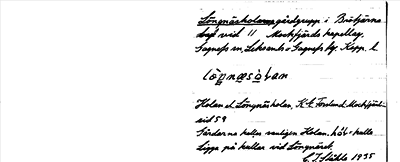 Löngnäsholarna gårdsgrupp i Brötjärna
byst vid Mockfjärds kapellag,
Gagnefs sn, Leksands o Gagnefs tg. Kopp. l.
löŋnæsòlan
Holen el. Löngnäsholen, K. E. Forslund Mockfjärd
sid 59
Gårdarna kallas vanligen Holen. = kulle
Ligga på kullar vid Löngnäset.
C. J. Ståhle 1935